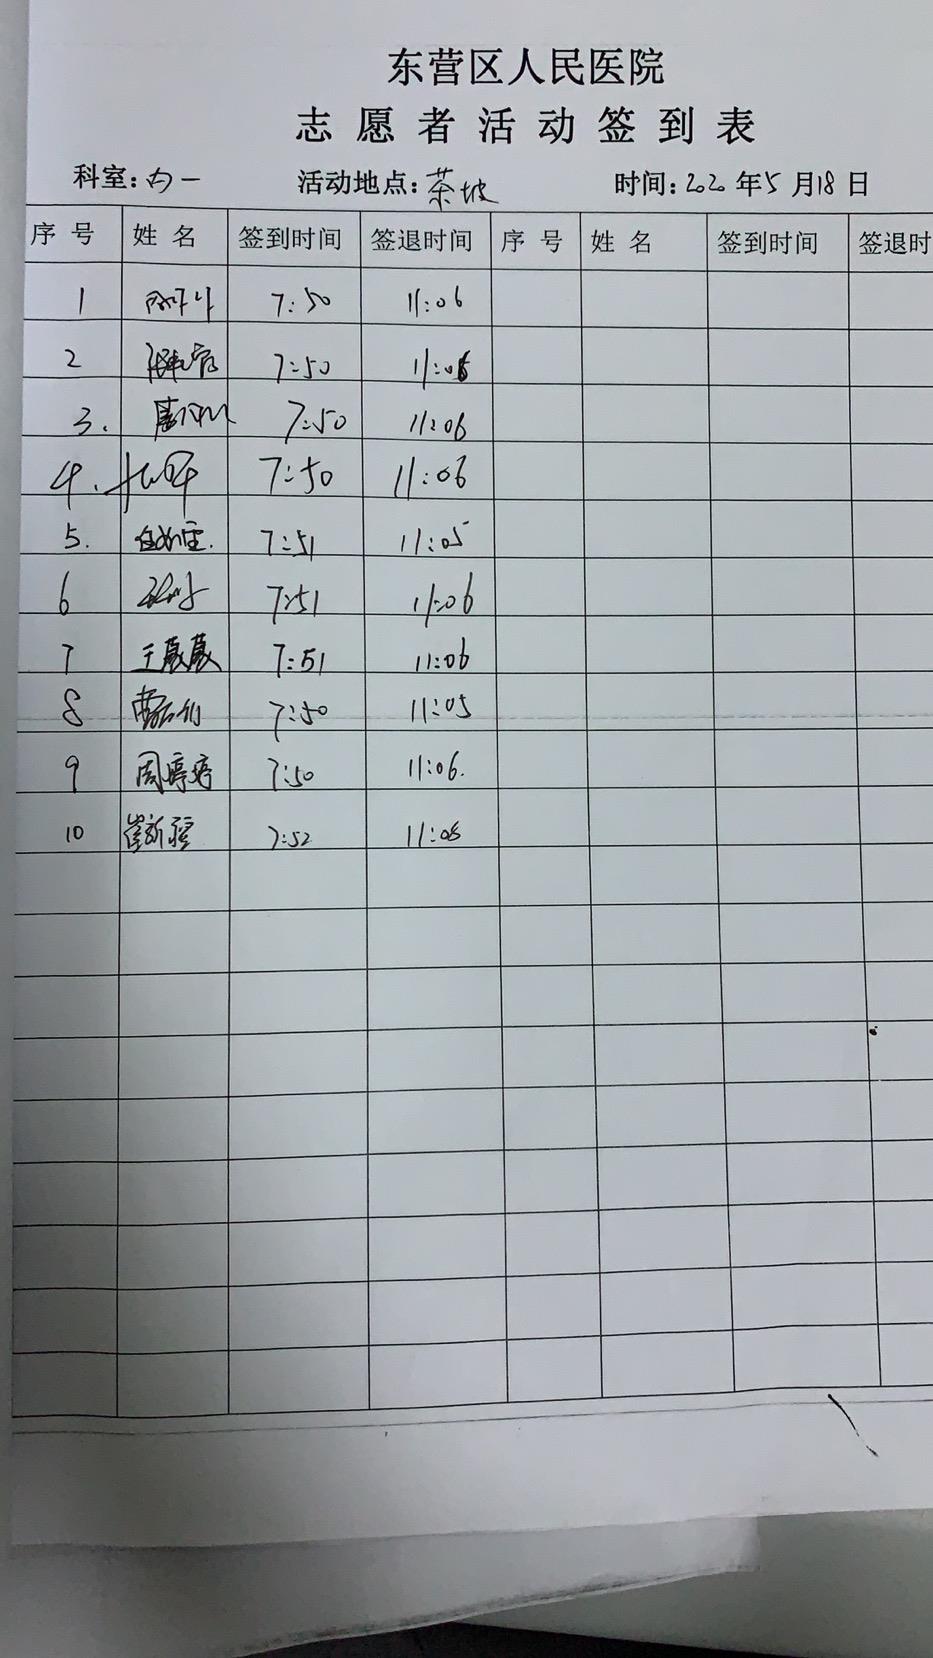 东营区人民医院
志愿者活动签到表
科室:内一 活动地点:茶坡 时间:2020年5月18日
序号 姓名 签到时间 签退时间 序号 姓名 签到时间 签退时
1 7:50 11:06
2 7:50 11:06
3. 7:50 11:06
4. 7:50 11:06
5. 7:51 11:05
6 7:51 11:06
7 王葳葳 7:51 11:06
8 7:50 11:05
9 周婷婷 7:50 11:06.
10 崔新强 7:52